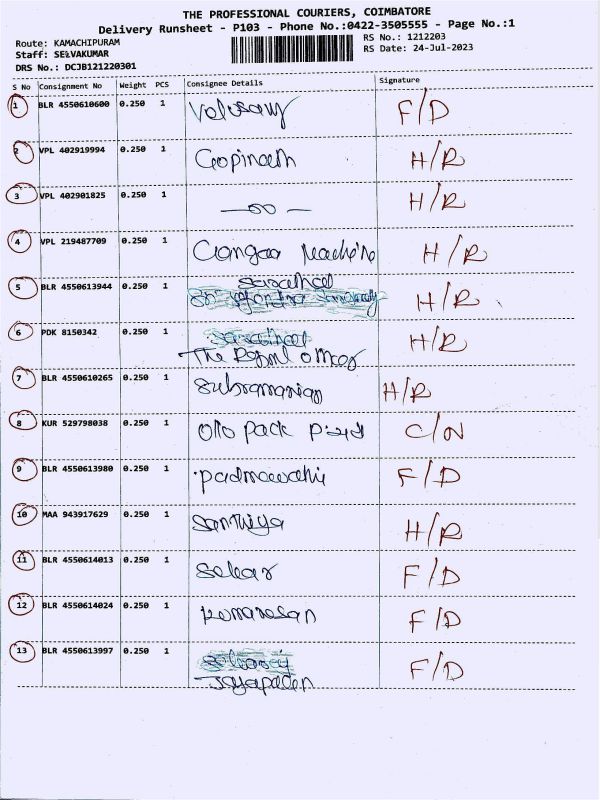 THE PROFESSIONAL COURIERS, COIMBATORE
Delivery Runsheet - P103 - Phone No.:0422-3505555 - Page No.:1
Route: KAMACHIPURAM RS No.: 1212203
Staff: SELVAKUMAR RS Date: 24-Jul-2023
DRS No.: DCJB121220301
S No Consignment No Weight PCS Consignee Details Signature
1 BLR 4550610600 0.250 1 F/D
2 VPL 402919994 0.250 1 Gopinath H/R
3 VPL 402901825 0.250 1 H/R
4 VPL 219487709 0.250 1 H/R
5 BLR 4550613944 0.250 1 H/R
6 PDK 8150342 0.250 1 H/R
The officer
7 BLR 4550610265 0.250 1 Subramanian H/R
8 KUR 529798038 0.250 1 pack C/N
9 BLR 4550613980 0.250 1 F/D
10 MAA 943917629 0.250 1 Santhiya H/R
11 BLR 4550614013 0.250 1 Sekar F/D
12 BLR 4550614024 0.250 1 F/D
13 BLR 4550613997 0.250 1 F/D